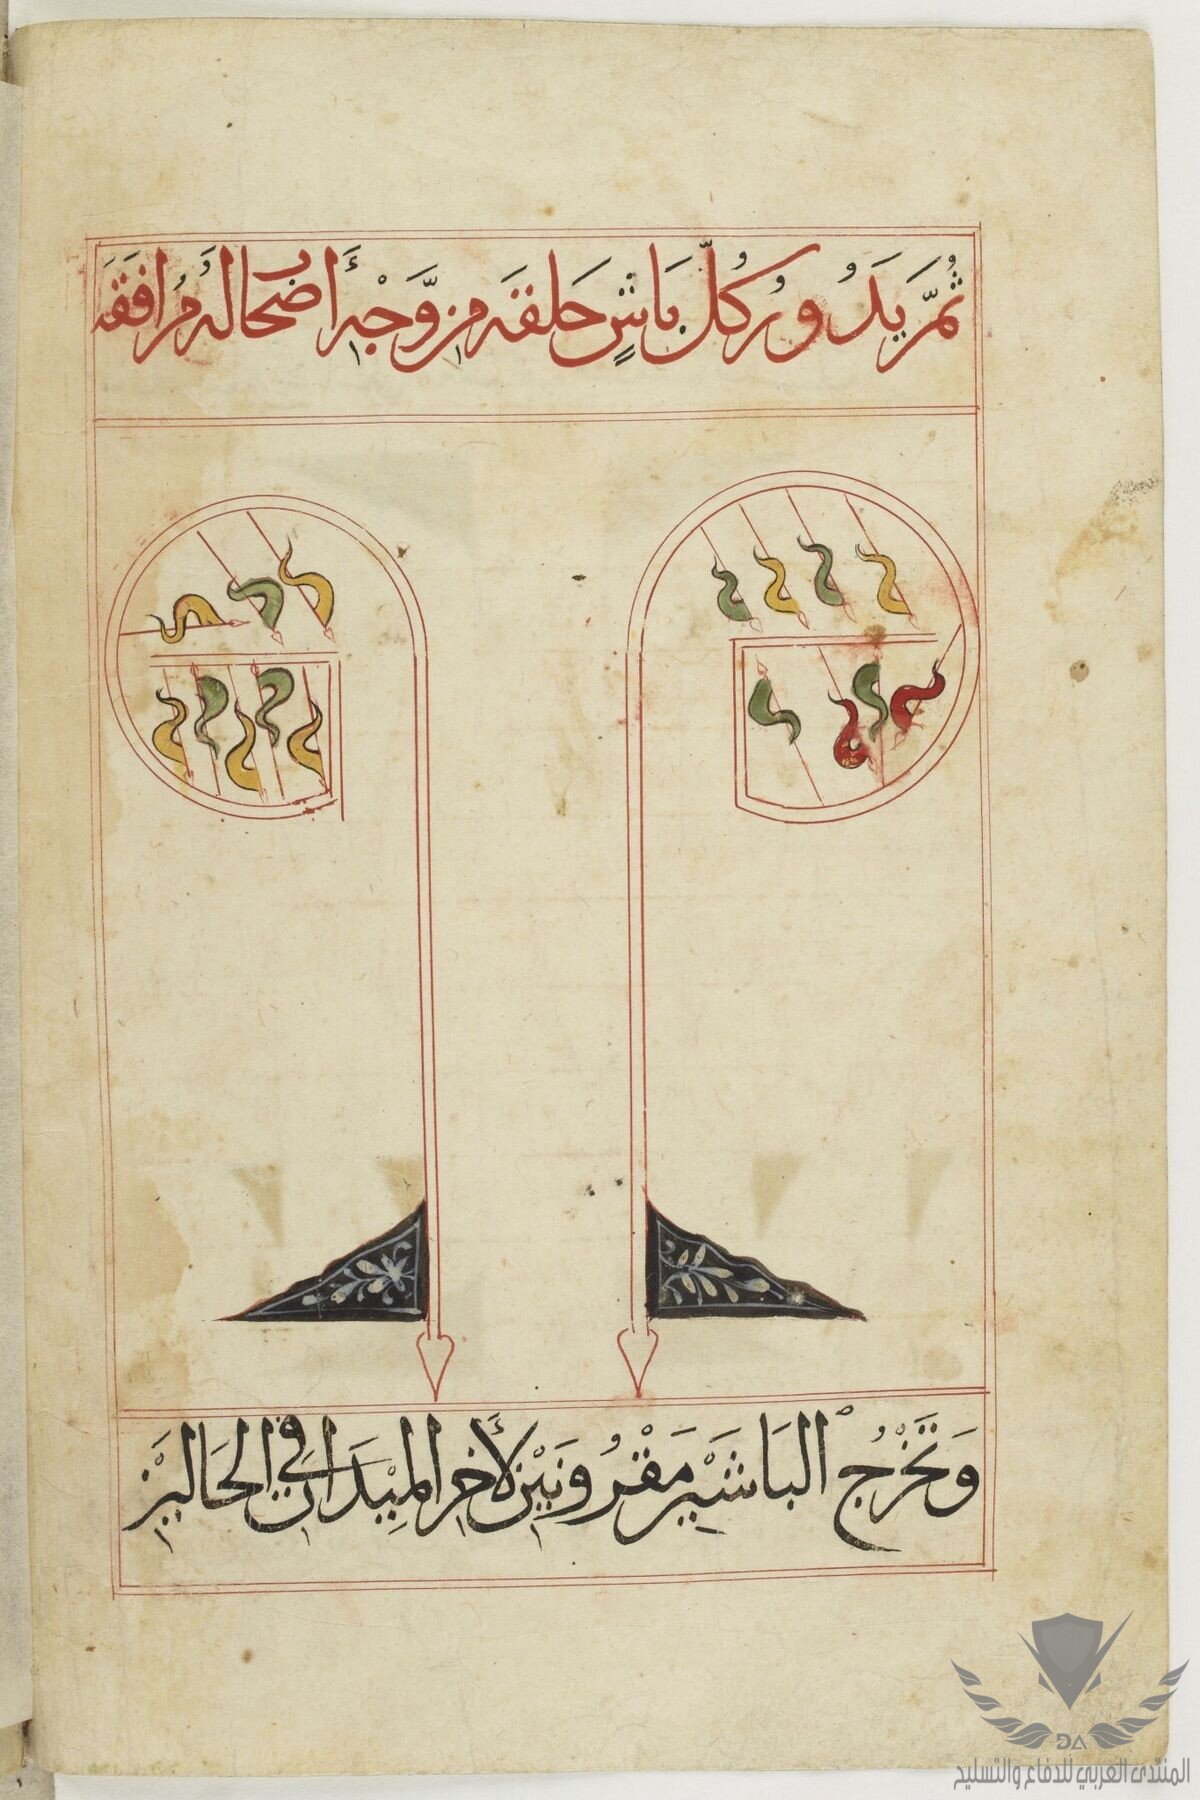 ثُمَّ يَدُورُ كُلُّ بَاشٍ حَلقَه مِن وَّجْهِ أَصْحَابِهِ مُرَافَقَه
وَتَخْرُجْ البَاشَيْنِ مَقْرُونَيْنِ لأَخِرِ المِيْدَانِ فِي الحَالَيْنِ
DA
المنتدى العربي للدفاع والتسليح